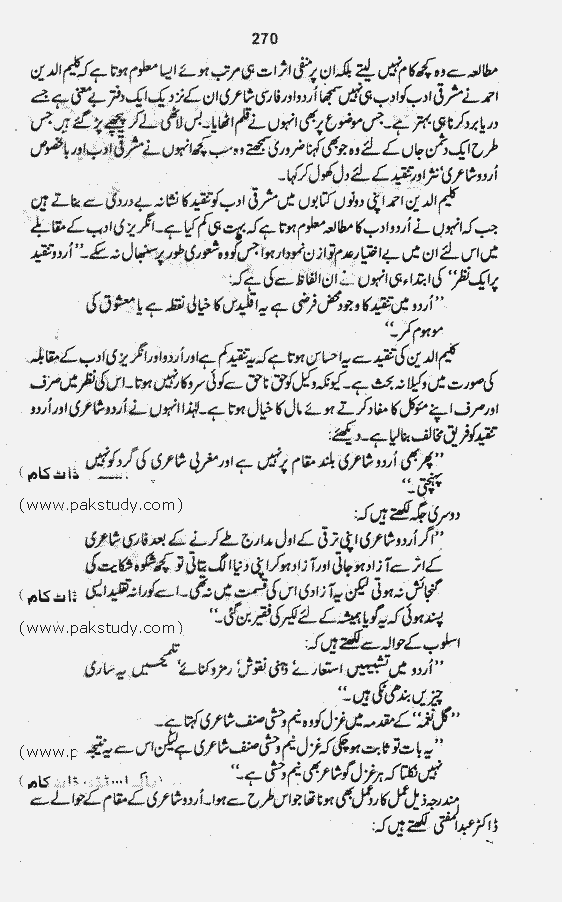 270
مطالعہ سے وہ کچھ کام نہیں لیتے بلکہ ان پر منفی اثرات ہی مرتب ہوئے ایسا معلوم ہوتا ہے کہ کلیم الدین
احمد نے مشرقی ادب کو ادب ہی نہیں سمجھا اُردو اور فارسی شاعری ان کے نزدیک ایک دفتر بے معنی ہے جسے
دریا برد کرنا ہی بہتر ہے۔ جس موضوع پر بھی انہوں نے قلم اٹھایا۔ بس لاٹھی لے کر پیچھے پڑ گئے ہیں جس
طرح ایک دشمن جاں کے لئے وہ جو بھی کہنا ضروری سمجھتے وہ سب کچھ انہوں نے مشرقی ادب اور بالخصوص
اُردو شاعری‘ نثر اور تنقید کے لئے دل کھول کر کہا۔
کلیم الدین احمد اپنی دونوں کتابوں میں مشرقی ادب کو تنقید کا نشانہ بے دردی سے بناتے ہیں
جب کہ انہوں نے اُردو ادب کا مطالعہ معلوم ہوتا ہے کہ بہت ہی کم کیا ہے۔ انگریزی ادب کے مقابلے
میں اس لئے ان میں بے اختیار عدم توازن نمودار ہوا جس کو وہ شعوری طور پر سنبھال نہ سکے۔ ’’اُردو تنقید
پر ایک نظر‘‘ کی ابتداء ہی انہوں نے ان الفاظ سے کی ہے کہ:
’’اُردو میں تنقید کا وجود محض فرضی ہے یہ اقلیدس کا خیالی نقطہ ہے یا معشوق کی
موہوم کمر۔‘‘
کلیم الدین کی تنقید سے یہ احساس ہوتا ہے کہ یہ تنقید کم ہے اور اُردو اور انگریزی ادب کے مقابلہ
کی صورت میں وکیلانہ بحث ہے۔ کیونکہ وکیل کو حق ناحق سے کوئی سروکار نہیں ہوتا۔ اس کی نظر میں صرف
اور صرف اپنے مؤکل کا مفاد کرتے ہوئے مال کا خیال ہوتا ہے۔ لہٰذا انہوں نے اُردو شاعری اور اُردو
تنقید کو فریق مخالف بنا لیا ہے۔ دیکھئے:
’’پھر بھی اُردو شاعری بلند مقام پر نہیں ہے اور مغربی شاعری کی گرد کو نہیں
پہنچتی۔‘‘
ڈاٹ کام )
(www.pakstudy.com)
دوسری جگہ لکھتے ہیں کہ:
’’اگر اُردو شاعری اپنی ترقی کے اول مدارج طے کرنے کے بعد فارسی شاعری
کے اثر سے آزاد ہو جاتی اور آزاد ہو کر اپنی دنیا الگ بتاتی تو کچھ شکوہ شکایت کی
گنجائش نہ ہوتی لیکن یہ آزادی اس کی قسمت میں نہ تھی۔ اسے کورانہ تقلید ایسی
ڈاٹ کام )
پسند ہوئی کہ یہ گویا ہمیشہ کے لئے لکیر کی فقیر بن گئی۔‘‘
(www.pakstudy.com)
اسلوب کے حوالہ سے لکھتے ہیں کہ:
’’اُردو میں تشبیہیں استعارے‘ ذہنی نقوش‘ رمز و کنائے‘ تلمیحیں یہ ساری
چیزیں بندھی ٹکی ہیں۔‘‘
’’گل نغمہ‘‘ کے مقدمہ میں غزل کو وہ نیم وحشی صنف شاعری کہتا ہے۔
’’یہ بات تو ثابت ہو چکی کہ غزل نیم وحشی صنف شاعری ہے لیکن اس سے یہ نتیجہ
(www.p
نہیں نکلتا کہ ہر غزل گو شاعر بھی نیم وحشی ہے۔‘‘
ڈاٹ کام )
مندرجہ ذیل عمل کا رد عمل بھی ہونا تھا جو اس طرح سے ہوا۔ اُردو شاعری کے مقام کے حوالے سے
ڈاکٹر عبدالمغنی لکھتے ہیں کہ: